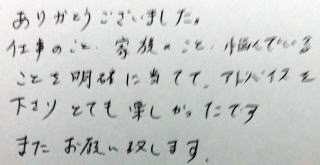 ありがとうございました。
仕事のこと、家族のこと、悩んでいる
ことを明確に当てて、アドバイスを
下さりとても楽しかったです
またお願い致します。